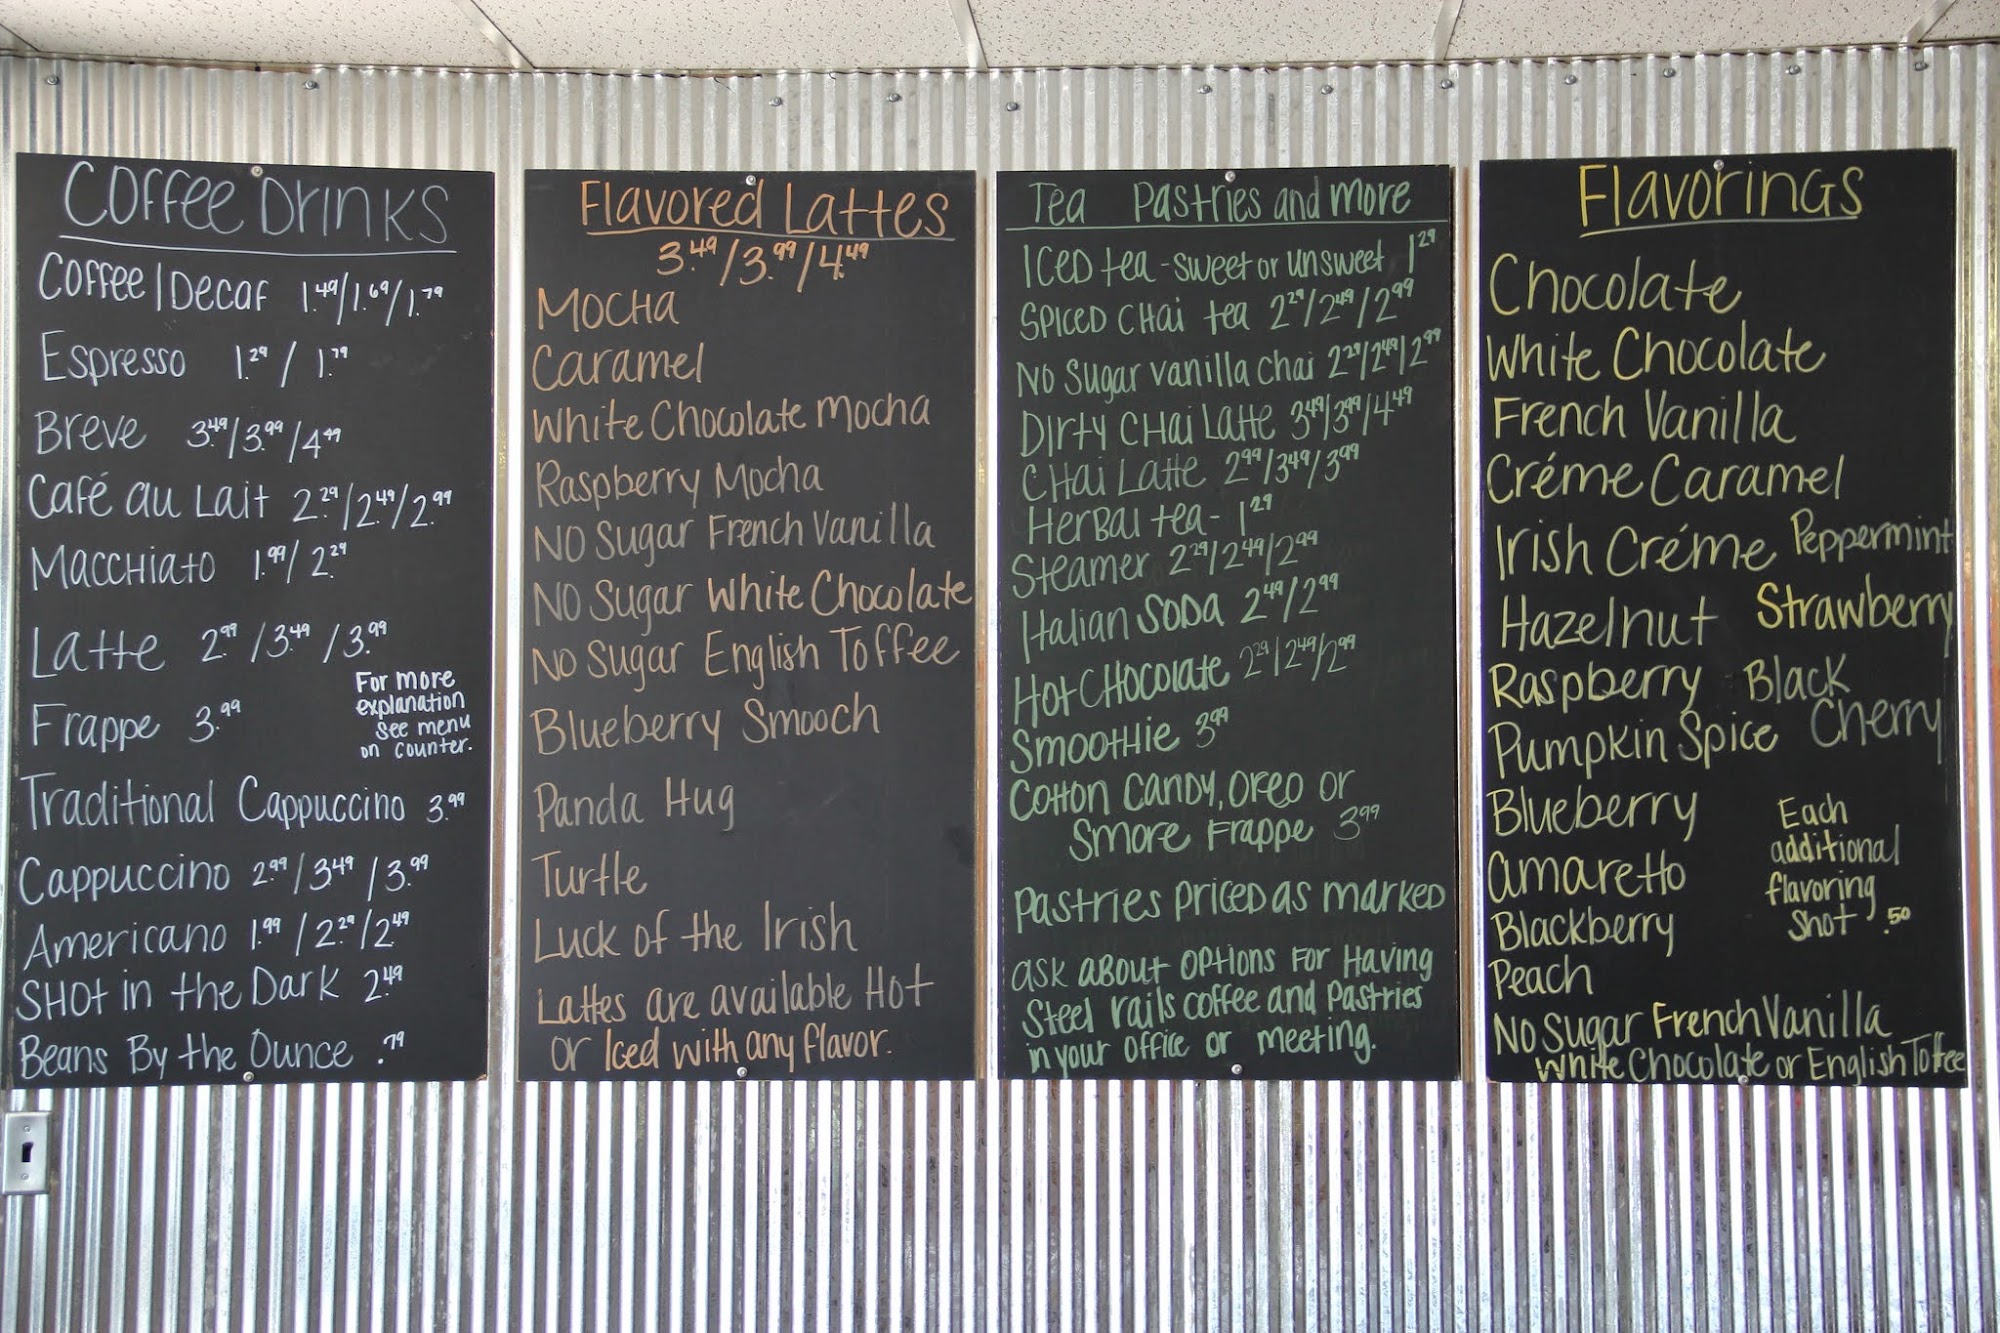 Coffee Drinks
Coffee/Decaf 1.49/1.69/1.79
Espresso 1.29/1.79
Breve 3.49/3.99/4.49
Café au Lait 2.29/2.49/2.99
Macchiato 1.99/2.29
Latte 2.99/3.49/3.99
Frappe 3.99
For more
explanation
see menu
on counter.
Traditional Cappuccino 3.99
Cappuccino 2.99/3.49/3.99
Americano 1.99/2.29/2.49
Shot in the Dark 2.49
Beans By the Ounce .79
Flavored Lattes
3.49/3.99/4.49
Mocha
Caramel
White Chocolate Mocha
Raspberry Mocha
No Sugar French Vanilla
No Sugar White Chocolate
No Sugar English Toffee
Blueberry Smooch
Panda Hug
Turtle
Luck of the Irish
Lattes are available Hot
or Iced with any flavor.
Tea Pastries and more
Iced tea - sweet or unsweet 1.29
Spiced Chai tea 2.29/2.49/2.99
No Sugar vanilla chai 2.29/2.49/2.99
Dirty Chai Latte 3.49/3.99/4.49
Chai Latte 2.99/3.49/3.99
Herbal tea - 1.29
Steamer 2.29/2.49/2.99
Italian Soda 2.49/2.99
Hot Chocolate 2.29/2.49/2.99
Smoothie 3.99
Cotton Candy, Oreo or
Smore Frappe 3.99
Pastries priced as marked
ask about options for having
Steel rails coffee and pastries
in your office or meeting.
Flavorings
Chocolate
White Chocolate
French Vanilla
Créme Caramel
Irish Créme Peppermint
Hazelnut Strawberry
Raspberry Black
Pumpkin Spice Cherry
Blueberry
amaretto
Blackberry
Peach
Each
additional
flavoring
shot .50
No Sugar French Vanilla
White Chocolate or English Toffee